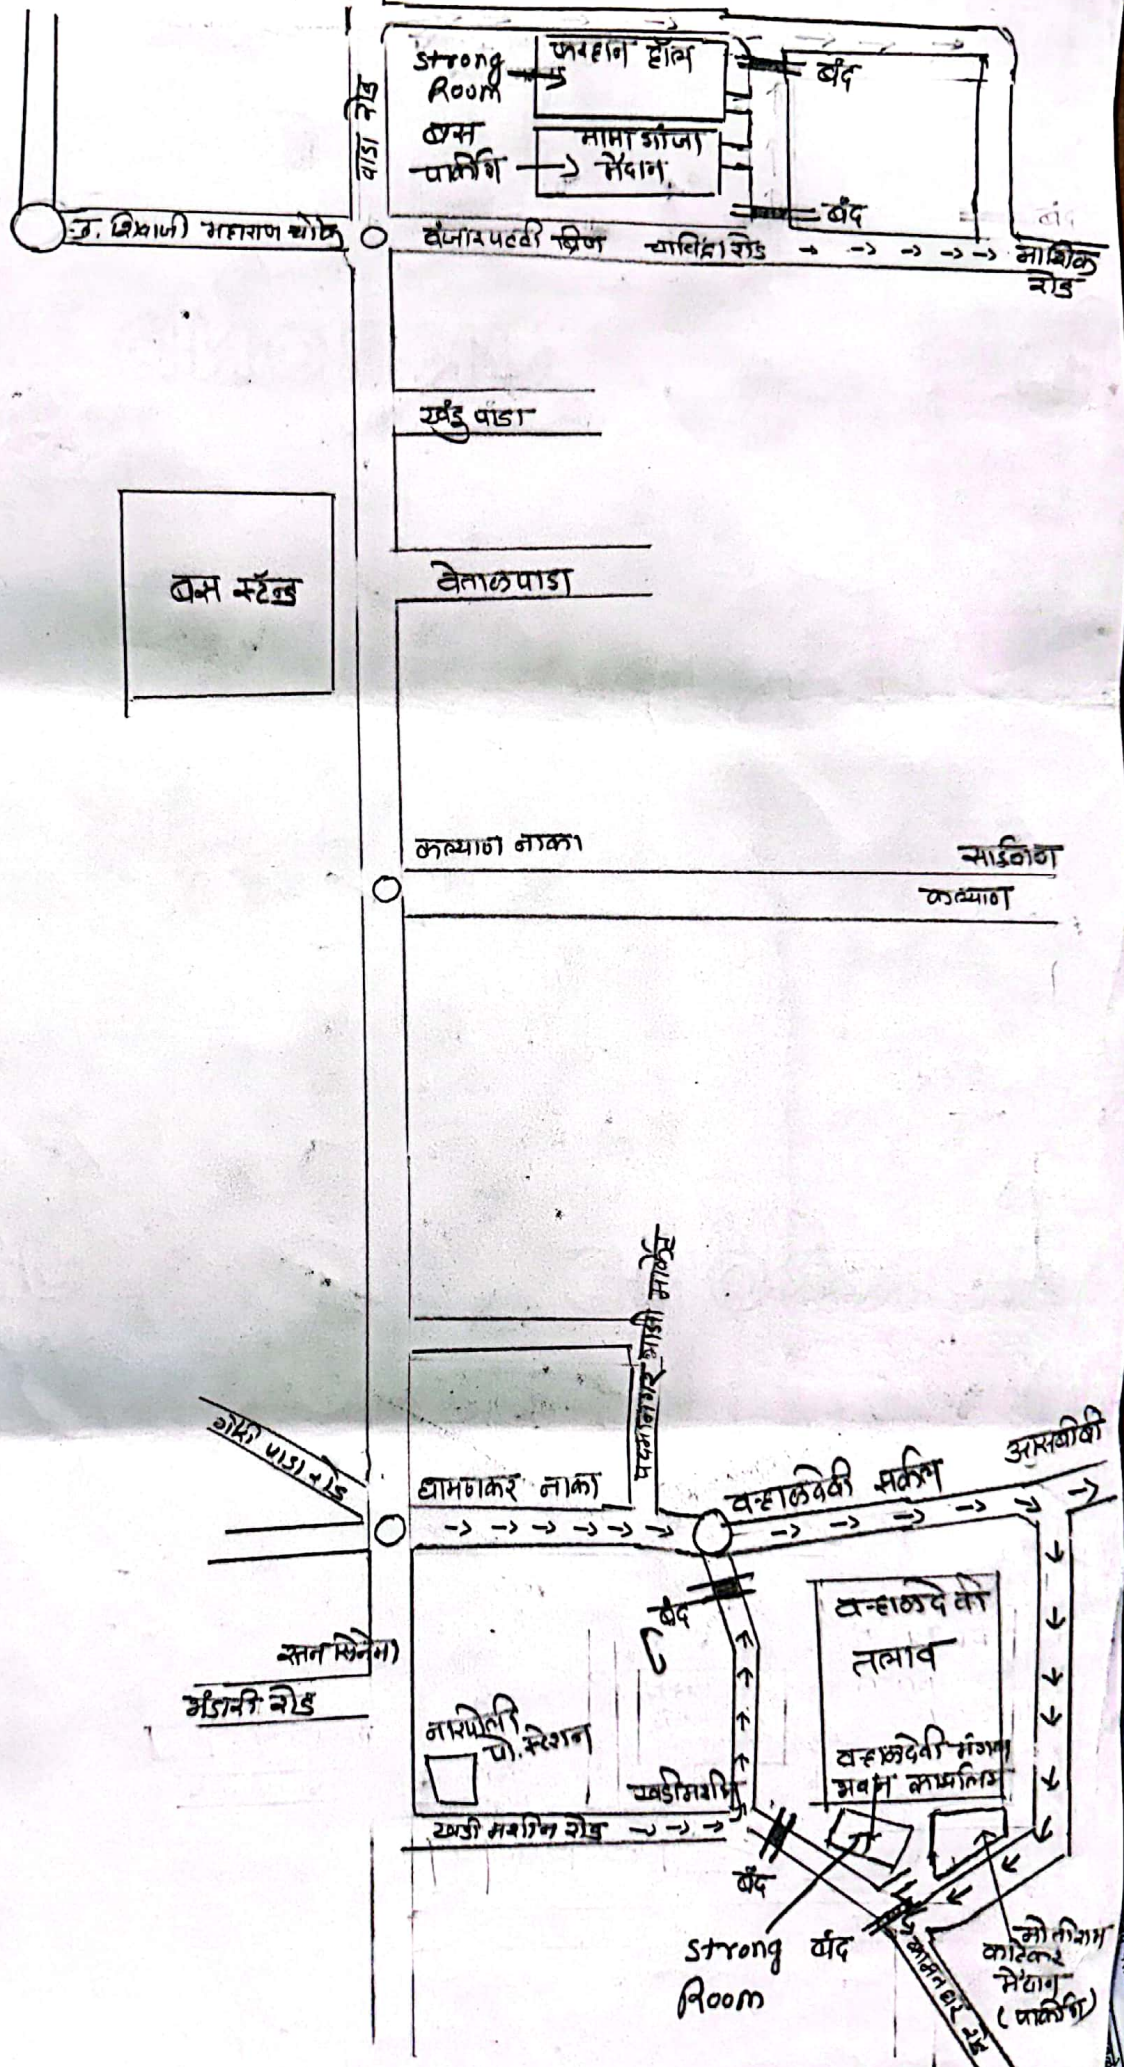 वाडा रोड
Strong
Room
फरहान हॉल
बंद
बस
पार्कींग
मामा भांजा
मैदान
बंद
बंद
छ. शिवाजी महाराज चौक
वंजारपट्टी ब्रिज
चाविंद्रा रोड
नाशिक
रोड
खंडू पाडा
बस स्टॅन्ड
वेताळपाडा
कल्याण नाका
साईबाग
कल्याण
पदमानगर भाजी मार्केट
गोपी पाडा रोड
धामणकर नाका
वऱ्हाळदेवी सर्कल
आसबीबी
बंद
वऱ्हाळदेवी
तलाव
रतन सिनेमा
भंडारी रोड
नारपोली
पो. स्टेशन
वऱ्हाळदेवी मंगल
भवन कार्यालय
खडीमशीन
खडी मशीन रोड
बंद
Strong
Room
बंद
कामतघर रोड
मोतीराम
काटेकर
मैदान
(पार्कींग)